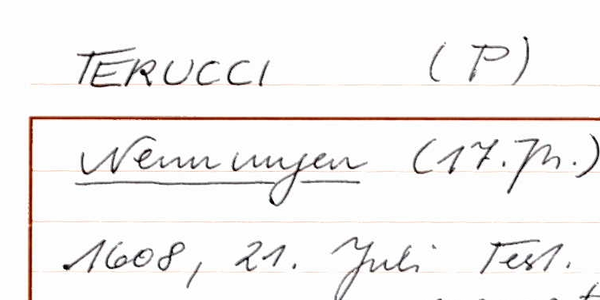 TERUCCI (P)
Nennungen (17. Jh.)
1608, 21. Juli Test.